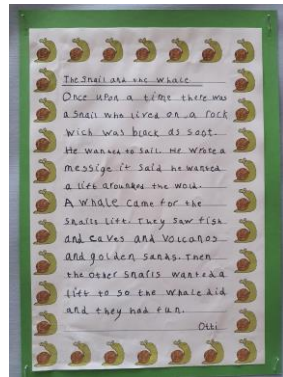 The Snail and the Whale
Once upon a time there was
a Snail who lived on a rock
wich was black as soot.
He wanted to Sail. He wrote a
messige it said he wanted
a lift arounded the wold.
A whale came for the
snails lift. They saw fish
and caves and volcanos
and golden sands. Then
the other snails wanted a
lift to so the whale did
and they had fun.
Otti